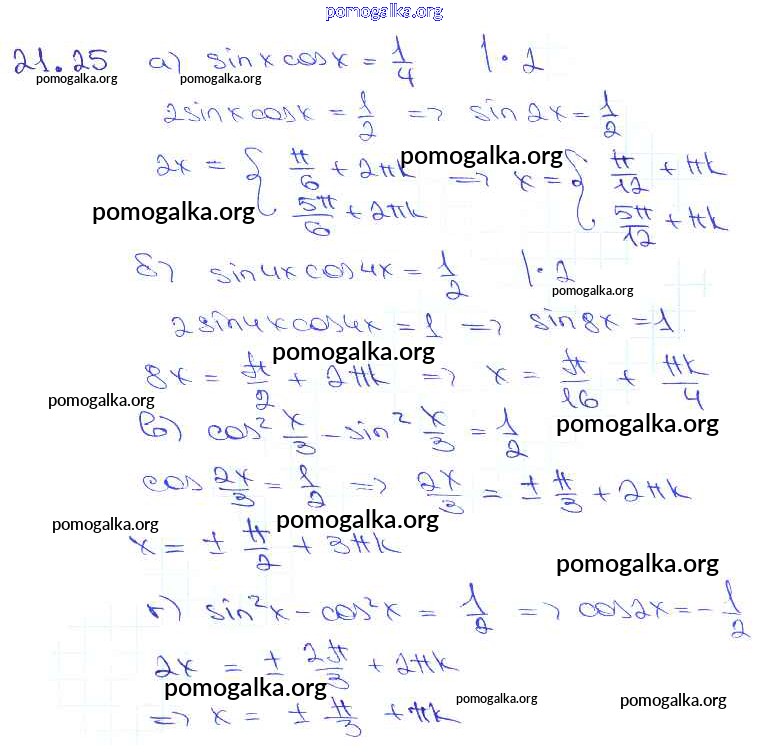 pomogalka.org
21.25 а) sin x cos x = 1/4 | · 2
pomogalka.org pomogalka.org
2 sin x cos x = 1/2 => sin 2x = 1/2
2x = { π/6 + 2πk pomogalka.org => x = { π/12 + πk
pomogalka.org 5π/6 + 2πk 5π/12 + πk
б) sin 4x cos 4x = 1/2 | · 2
pomogalka.org
2 sin 4x cos 4x = 1 => sin 8x = 1
pomogalka.org
8x = π/2 + 2πk => x = π/16 + πk/4
pomogalka.org
в) cos² x/3 - sin² x/3 = 1/2 pomogalka.org
cos 2x/3 = 1/2 => 2x/3 = ± π/3 + 2πk
pomogalka.org pomogalka.org
x = ± π/2 + 3πk
pomogalka.org
г) sin²x - cos²x = 1/2 => cos 2x = - 1/2
2x = ± 2π/3 + 2πk
pomogalka.org pomogalka.org pomogalka.org
=> x = ± π/3 + πk